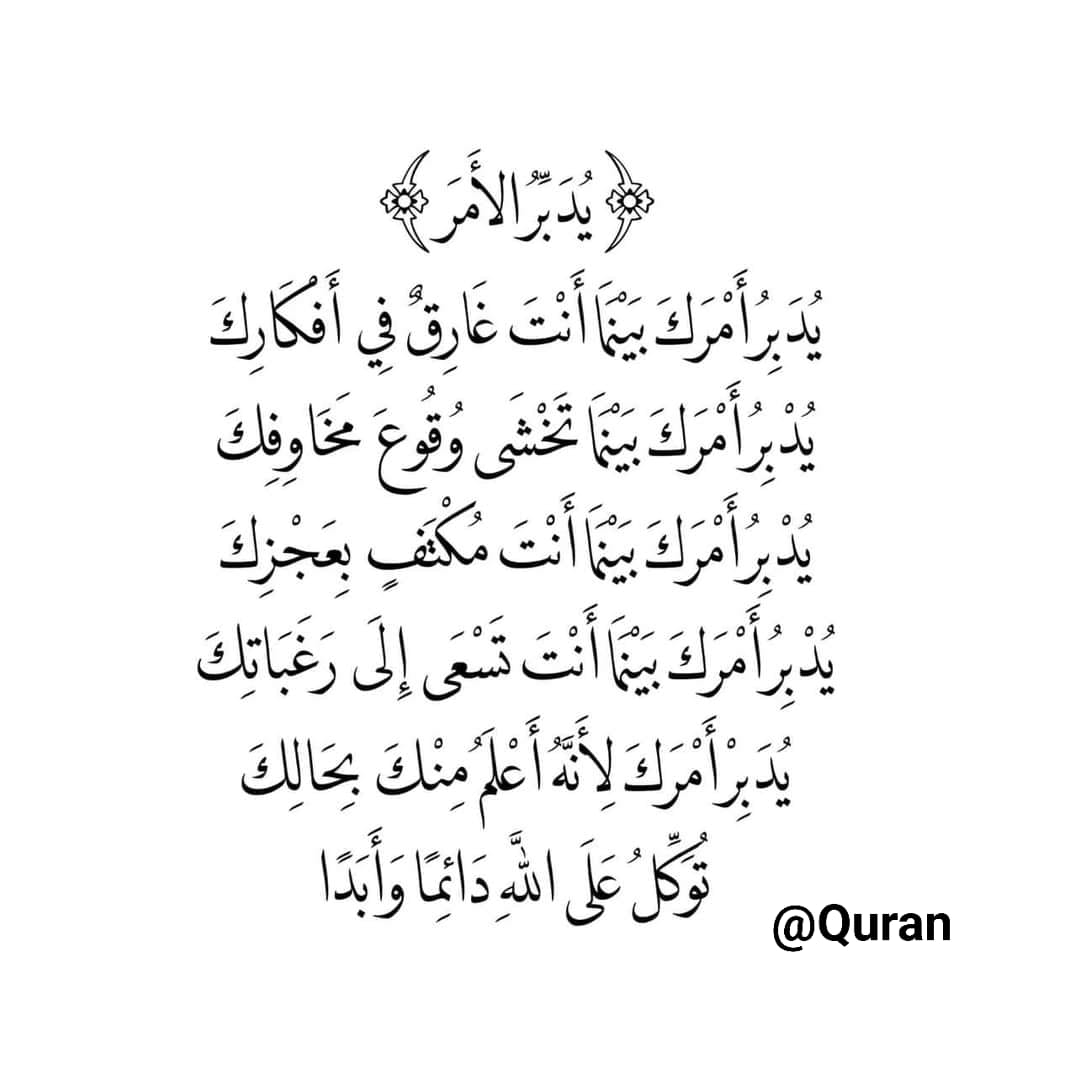 ﴿ يُدَبِّرُ الأَمرَ ﴾
يُدَبِرُ أَمْرَكَ بَيْنَمَا أَنْتَ غَارِقٌ فِي أَفْكَارِكَ
يُدْبِرُ أَمْرَكَ بَيْنَمَا تَخْشَى وُقُوعَ مَخَاوِفِكَ
يُدْبِرُ أَمْرَكَ بَيْنَمَا أَنْتَ مُكْتَفٍ بِعَجْزِكَ
يُدْبِرُ أَمْرَكَ بَيْنَمَا أَنْتَ تَسْعَى إِلَى رَغَبَاتِكَ
يُدَبِرْ أَمْرَكَ لِأَنَّهُ أَعْلَمُ مِنْكَ بِحَالِكَ
تُوَكِّلُ عَلَى اللَّهِ دَائِمًا وَأَبَدًا
@Quran